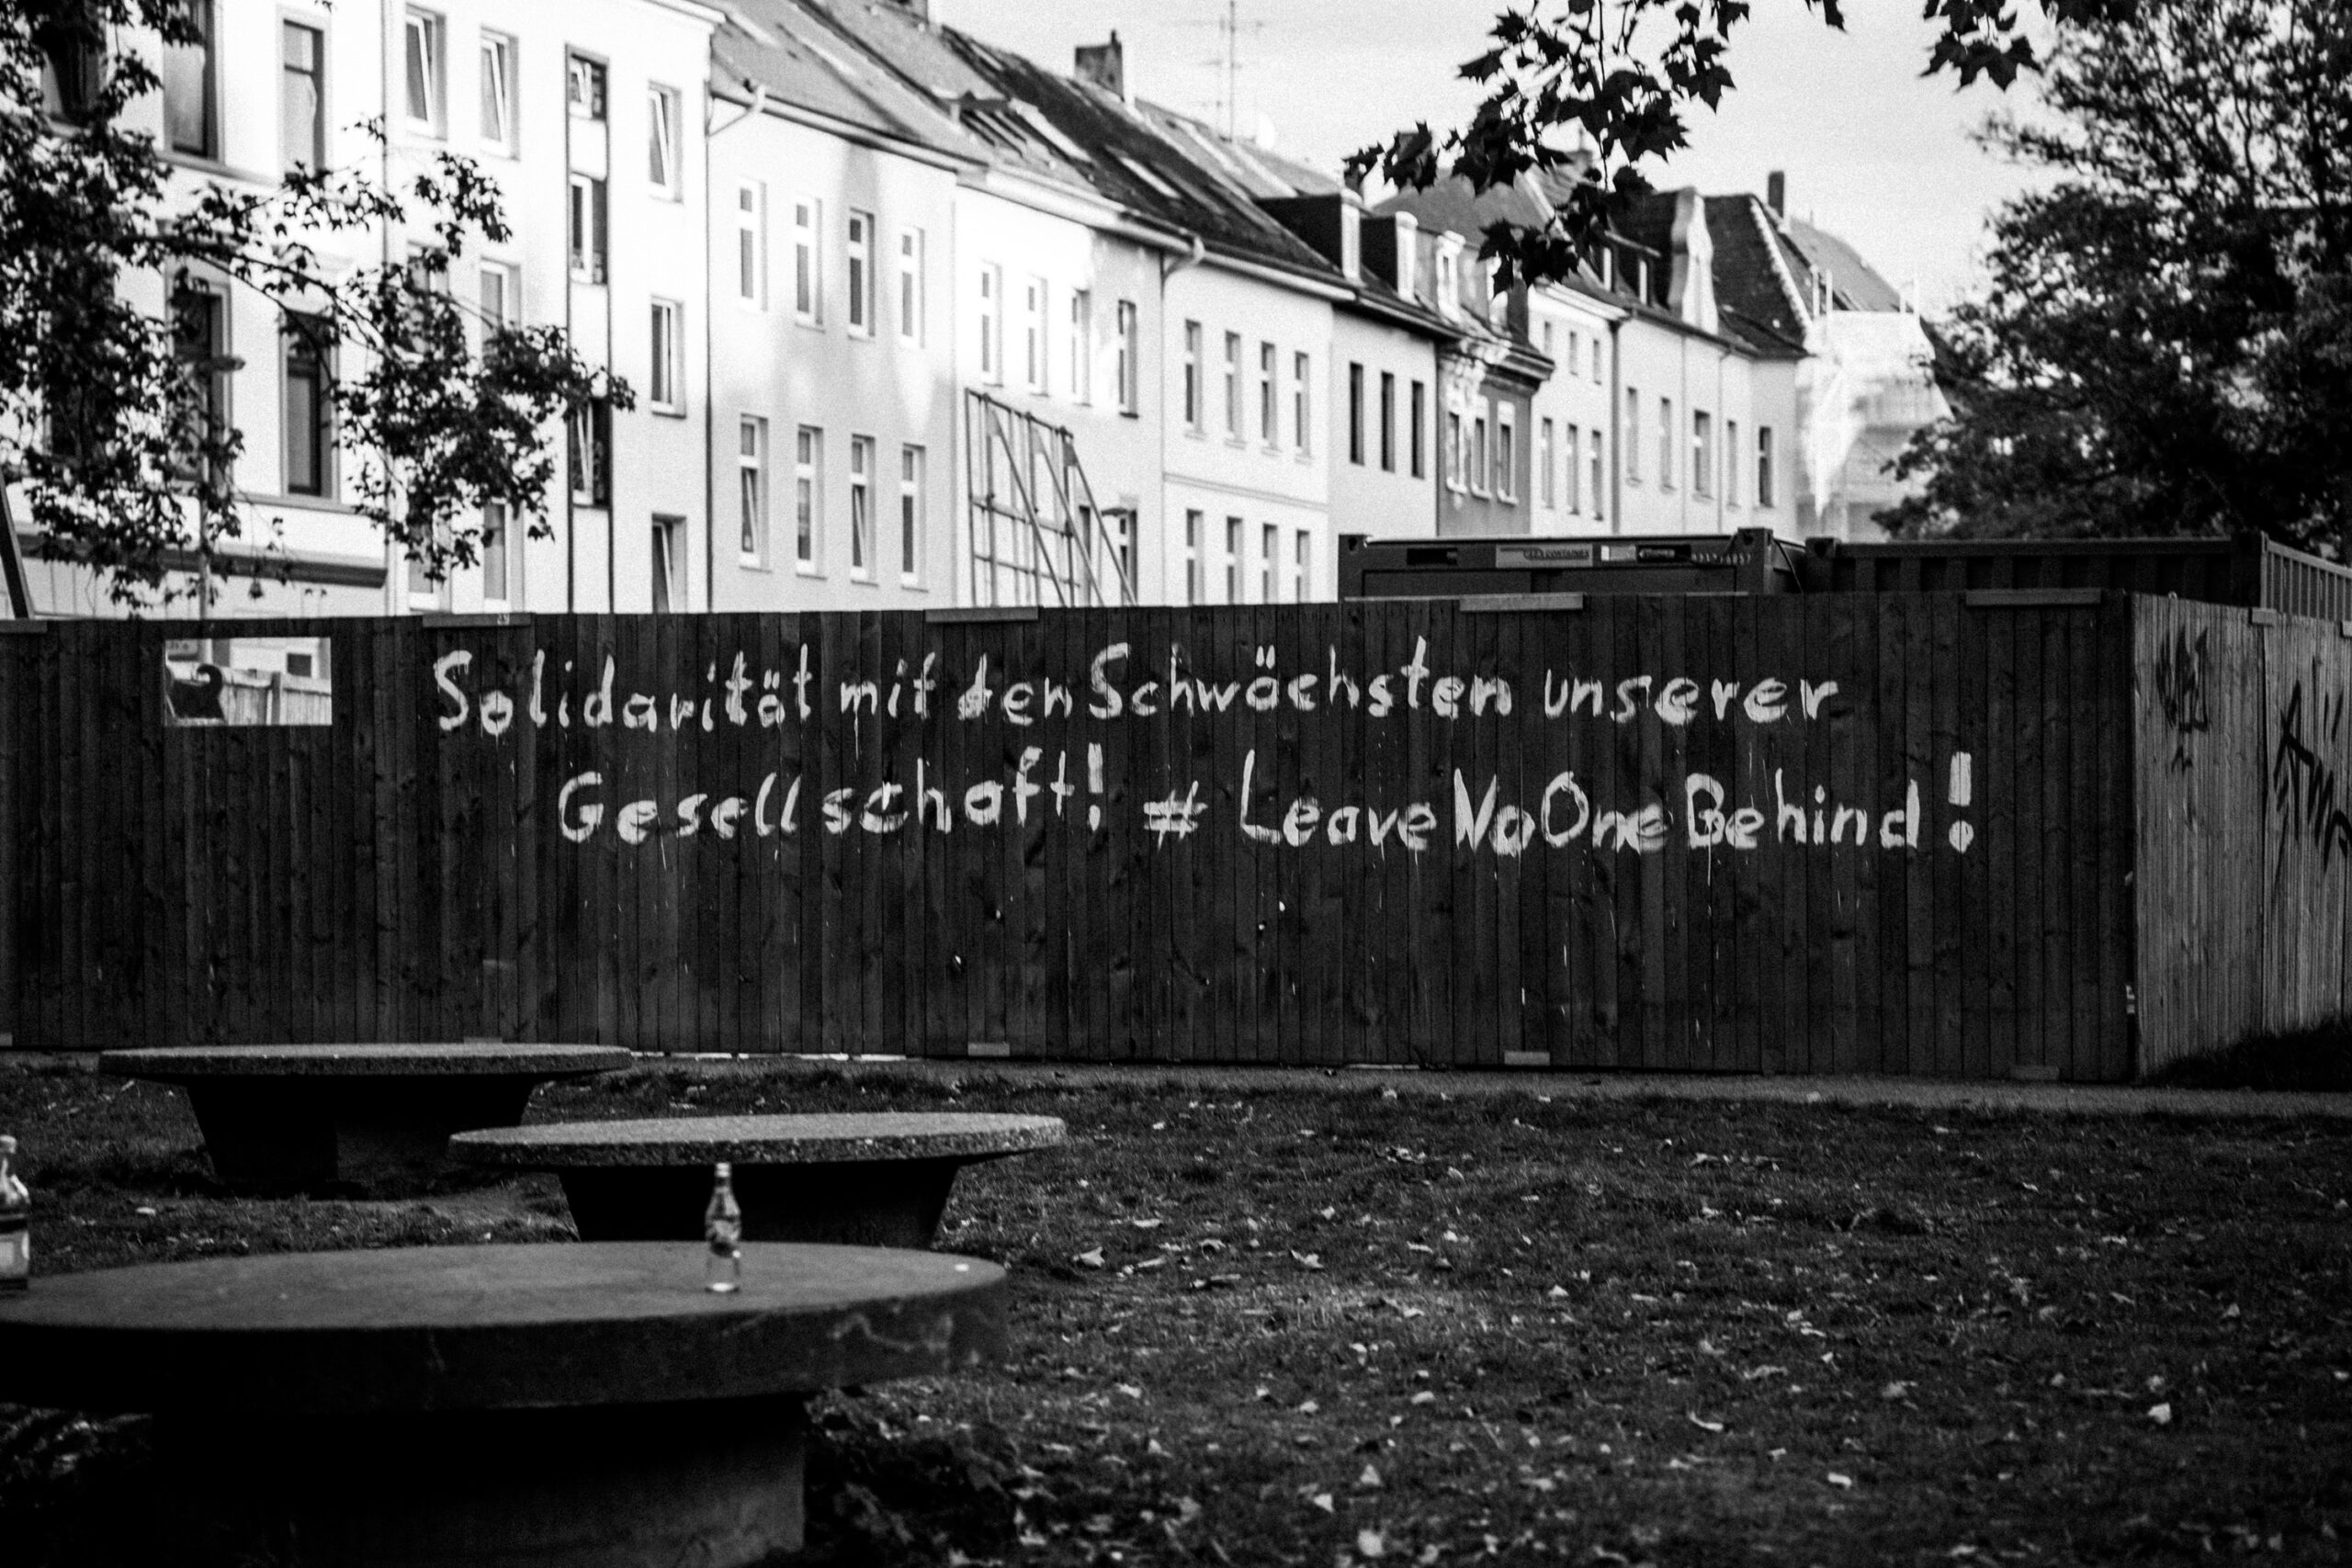 Solidarität mit den Schwächsten unserer
Gesellschaft! #LeaveNoOneBehind!